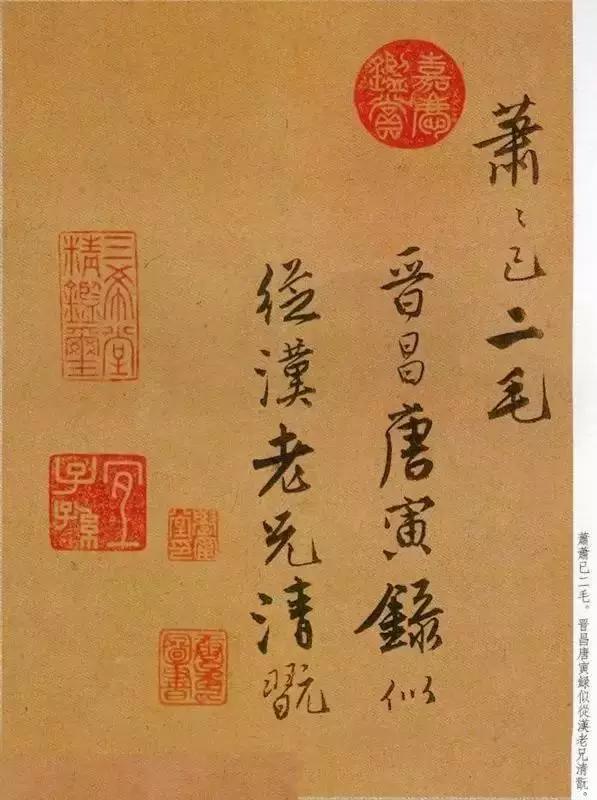 蕭〻已二毛
晋昌唐寅錄似
從漢老兄清翫
嘉慶鑑賞
三希堂精鑑璽
宜子孫
蕭蕭已二毛。晉昌唐寅録似從漢老兄清翫。